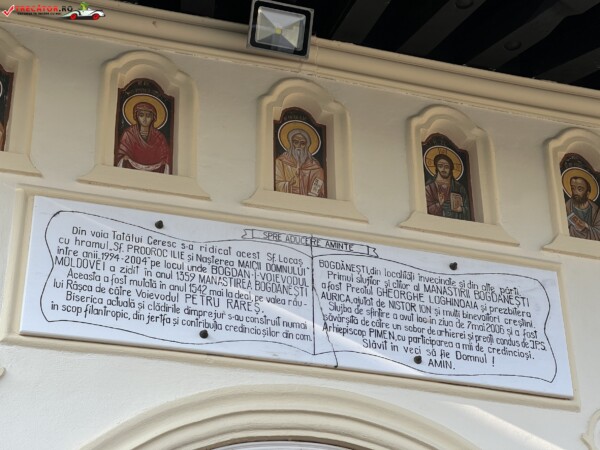 TRECĂTOR.RO
SPRE ADUCERE AMINTE
Din voia Tatălui Ceresc s-a ridicat acest Sf. Locaș
cu hramul „Sf. PROOROC ILIE și Nașterea MAICII DOMNULUI"
între anii „1994-2004" pe locul unde BOGDAN I-VOIEVODUL
MOLDOVEI a zidit în anul 1359 MANASTIREA BOGDĂNEȘTI
Aceasta a fost mutată în anul 1542 mai la deal, pe valea râu-
lui Râșca de către Voievodul PETRU RAREȘ.
Biserica actuală și clădirile dimprejur s-au construit numai
în scop filantropic, din jertfa și contribuția credincioșilor din com.
BOGDĂNEȘTI, din localități învecinate și din alte părți.
Primul slujitor și ctitor al MANASTIRII BOGDĂNEȘTI
a fost Preotul GHEORGHE LOGHINOAIA și prezbitera
AURICA, ajutat de NISTOR ION și mulți binevoitori creștini.
Slujba de sfințire a avut loc în ziua de 7 mai 2006 și a fost
săvârșită de către un sobor de arhierei și preoți condus de Î.P.S.
Arhiepiscop PIMEN, cu participarea a mii de credincioși.
Slăvit în veci să fie Domnul !
AMIN.